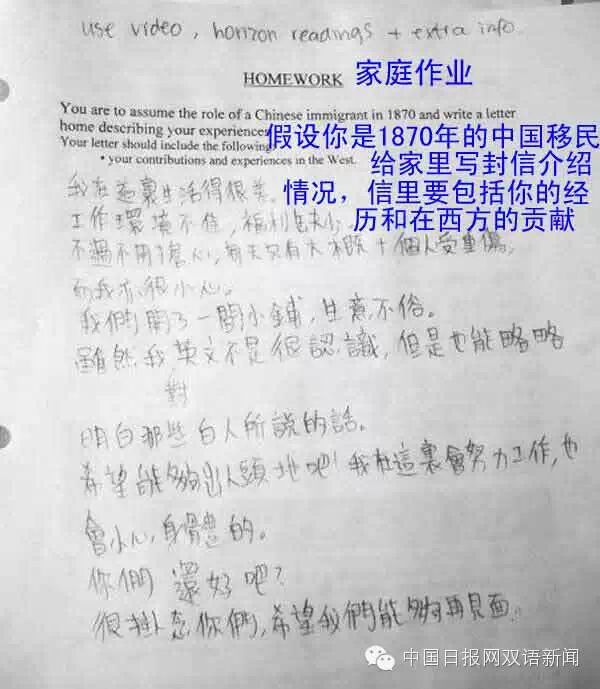 use video, horizon readings + extra info
HOMEWORK 家庭作业
You are to assume the role of a Chinese immigrant in 1870 and write a letter
home describing your experiences
假设你是1870年的中国移民
Your letter should include the following
给家里写封信介绍
• your contributions and experiences in the West.
情况，信里要包括你的经
历和在西方的贡献
我在這裏生活得很
工作環境不佳，福利
不過不用擔心，每天只有大概十個人受重傷，
而我亦很小心。
我們開了一間小鋪，生意不俗。
雖然我對英文不是很認識，但是也能略略
明白那些白人所說的話。
希望能夠出人頭地吧！我在這裏會努力工作，也
會小心身體的。
你們還好吧？
很掛念你們，希望我們能夠再見面。
中国日报网双语新闻